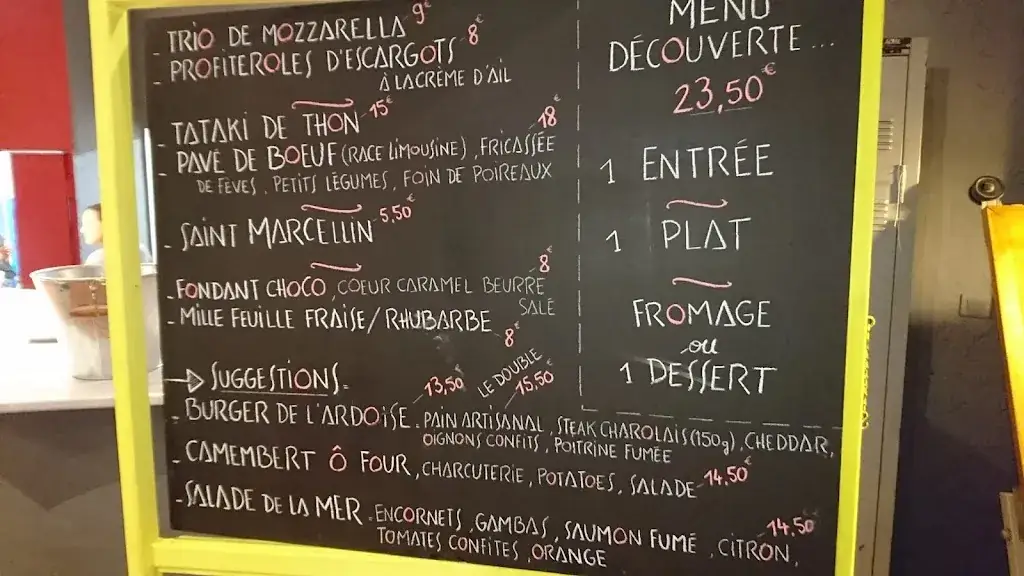 - TRIO DE MOZZARELLA 9€
- PROFITEROLES D'ESCARGOTS 8€
À LA CRÈME D'AIL
- TATAKI DE THON 15€
- PAVÉ DE BOEUF (RACE LIMOUSINE), FRICASSÉE 18€
DE FÈVES, PETITS LÉGUMES, FOIN DE POIREAUX
- SAINT MARCELLIN 5.50€
- FONDANT CHOCO, COEUR CARAMEL BEURRE 8€
SALÉ
- MILLE FEUILLE FRAISE/RHUBARBE 8€
SUGGESTIONS. 13,50€ LE DOUBLE 15.50€
- BURGER DE L'ARDOISE. PAIN ARTISANAL, STEAK CHAROLAIS (150g), CHEDDAR,
OIGNONS CONFITS, POITRINE FUMÉE
- CAMEMBERT Ô FOUR, CHARCUTERIE, POTATOES, SALADE 14.50€
- SALADE DE LA MER. ENCORNETS, GAMBAS, SAUMON FUMÉ, CITRON, 14.50€
TOMATES CONFITES, ORANGE
MENU
DÉCOUVERTE...
23,50€
1 ENTRÉE
1 PLAT
FROMAGE
ou
1 DESSERT